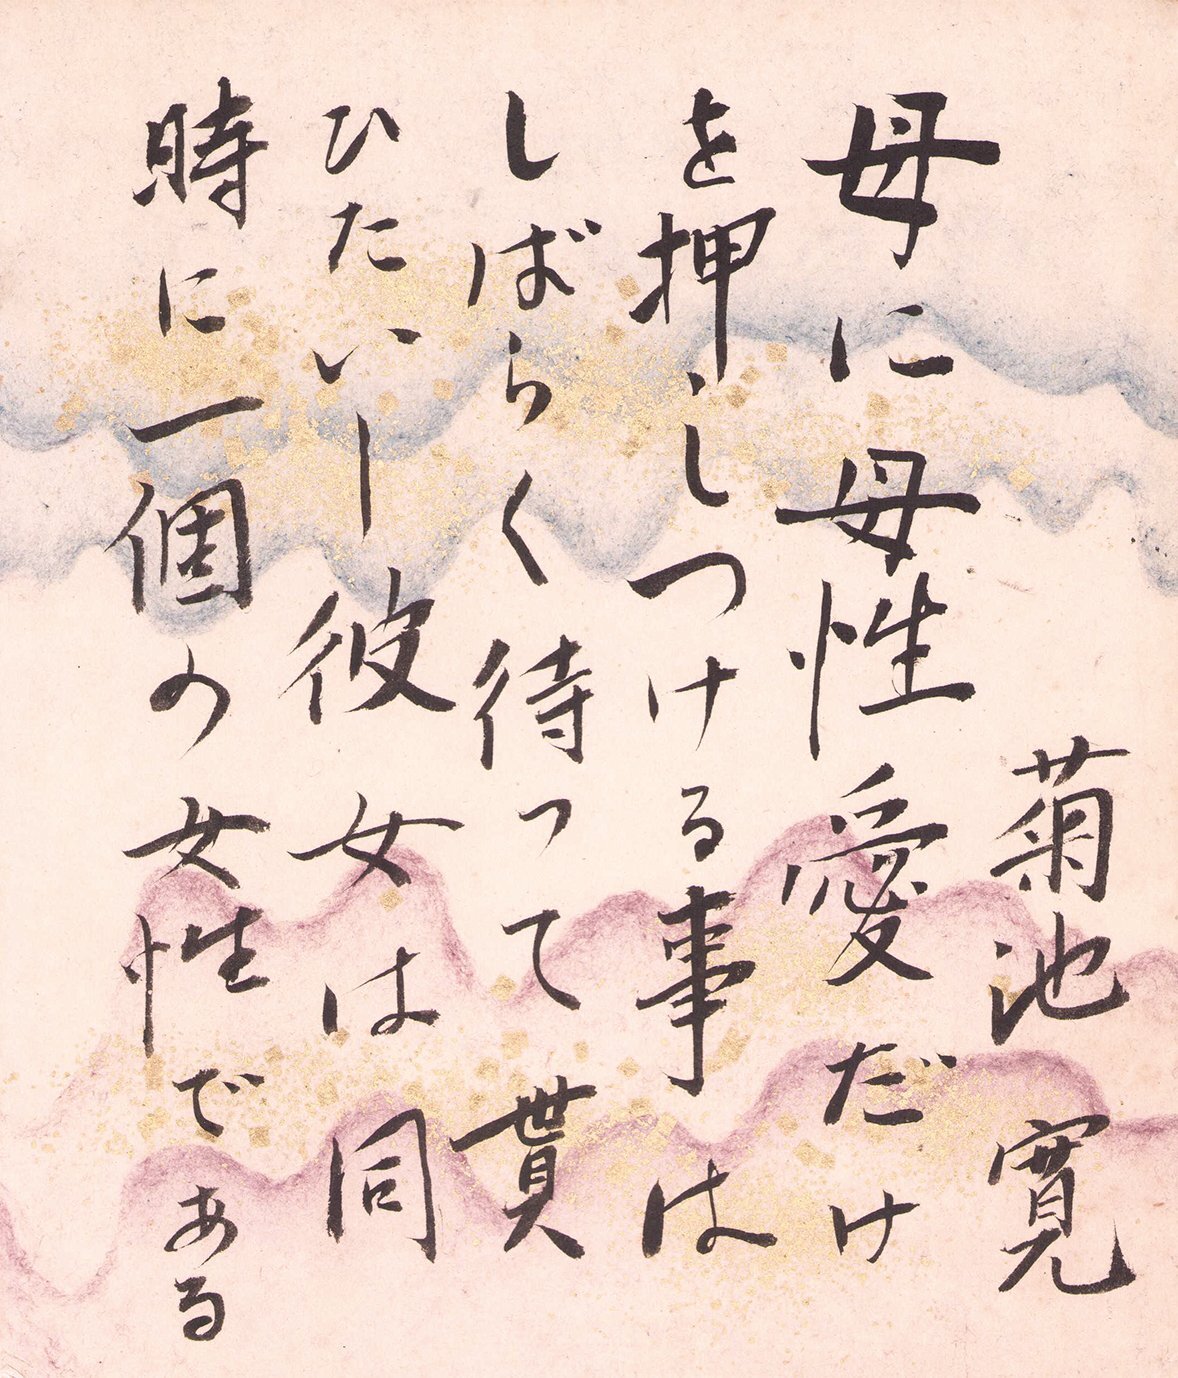 菊池 寛
母に母性愛だけ
を押しつける事は
しばらく待って貰
ひたい―彼女は同
時に一個の女性である